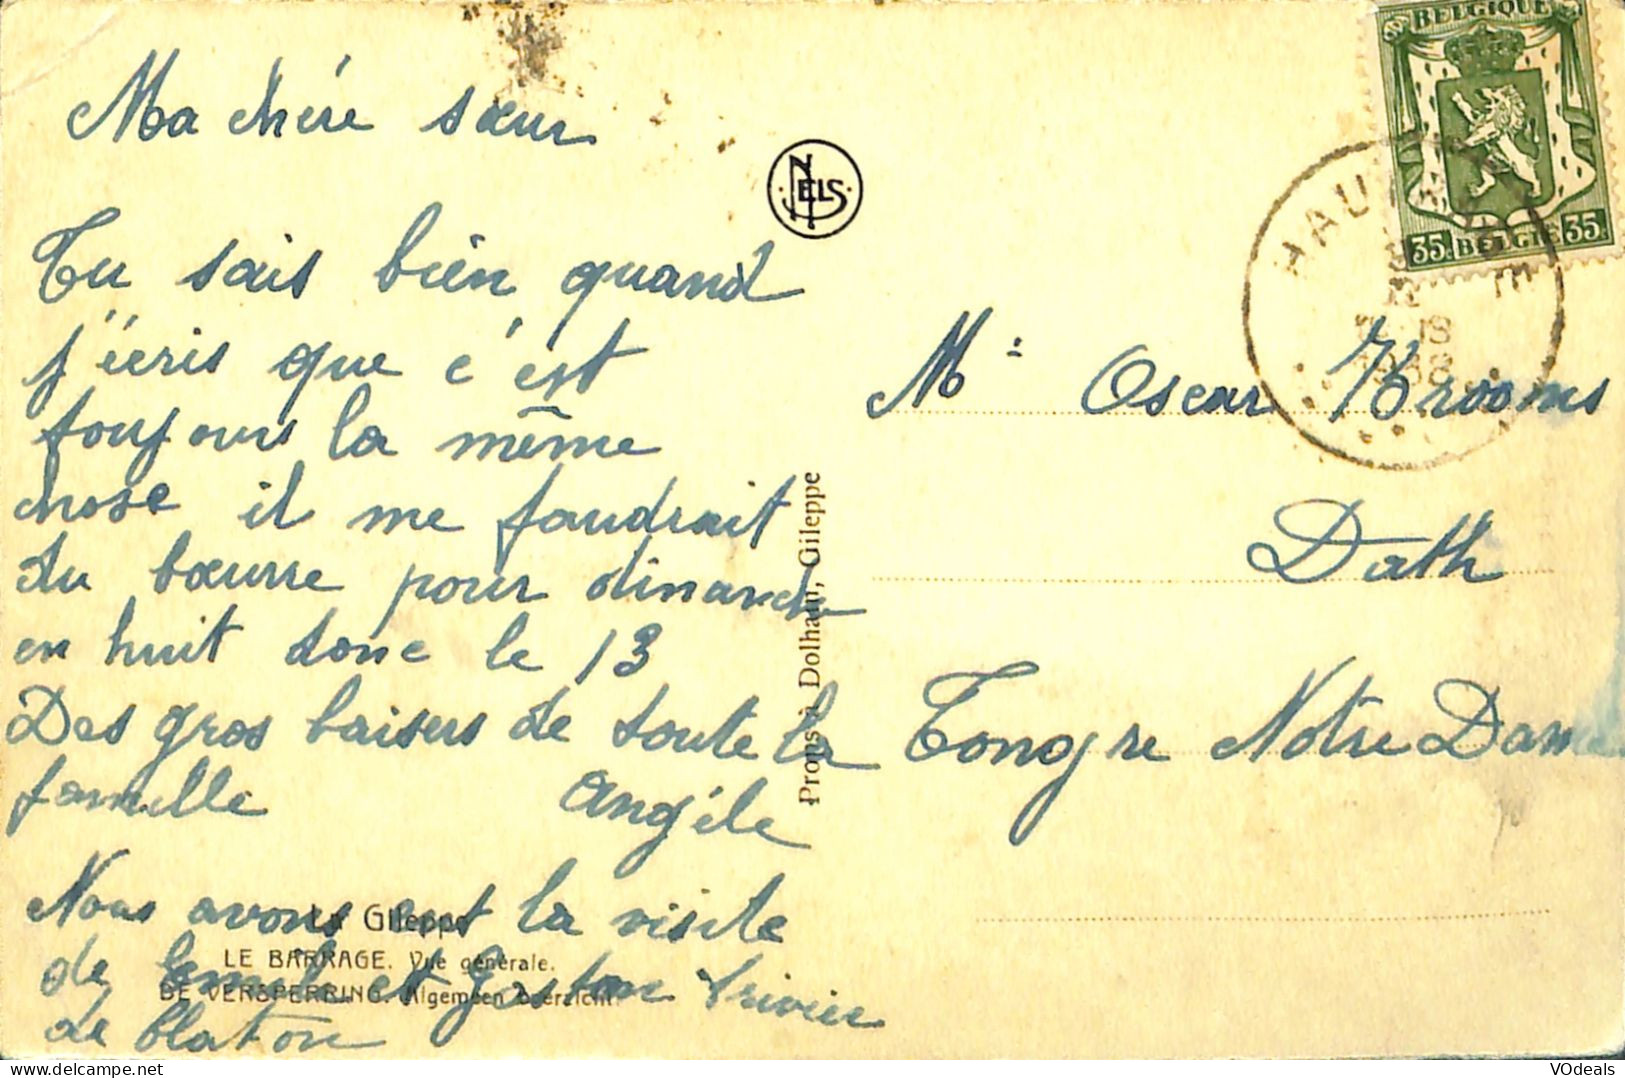 Ma chère sœur
Tu sais bien quand
j'écris que c'est
toujours la même
chose il me faudrait
du bœurre pour dimanche
en huit donc le 13
Des gros baisers de toute la
famille Angèle
Nous avons eut la visite
de et Gaston
de blaton
NELS
Prons à Dolhain, Gileppe
La Gileppe
LE BARRAGE. Vue générale.
DE VERSPERRING. Algemeen overzicht.
BELGIQUE
35c BELGIE 35c
Mr Oscar Krooms
Dath
Tongre Notre Dame
VOdeals